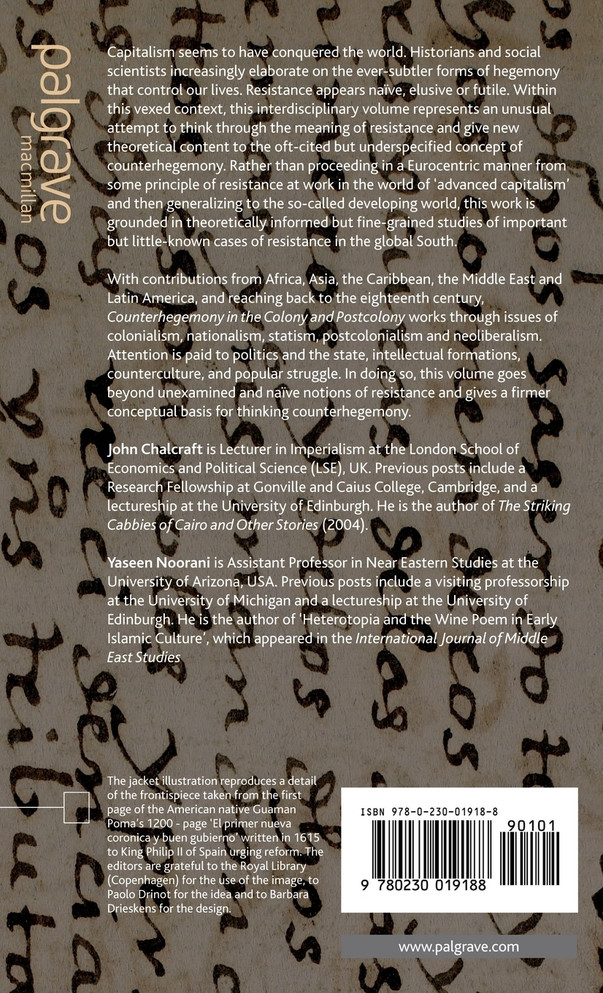 palgrave
macmillan
Capitalism seems to have conquered the world. Historians and social
scientists increasingly elaborate on the ever-subtler forms of hegemony
that control our lives. Resistance appears naïve, elusive or futile. Within
this vexed context, this interdisciplinary volume represents an unusual
attempt to think through the meaning of resistance and give new
theoretical content to the oft-cited but underspecified concept of
counterhegemony. Rather than proceeding in a Eurocentric manner from
some principle of resistance at work in the world of 'advanced capitalism'
and then generalizing to the so-called developing world, this work is
grounded in theoretically informed but fine-grained studies of important
but little-known cases of resistance in the global South.
With contributions from Africa, Asia, the Caribbean, the Middle East and
Latin America, and reaching back to the eighteenth century,
Counterhegemony in the Colony and Postcolony works through issues of
colonialism, nationalism, statism, postcolonialism and neoliberalism.
Attention is paid to politics and the state, intellectual formations,
counterculture, and popular struggle. In doing so, this volume goes
beyond unexamined and naïve notions of resistance and gives a firmer
conceptual basis for thinking counterhegemony.
John Chalcraft is Lecturer in Imperialism at the London School of
Economics and Political Science (LSE), UK. Previous posts include a
Research Fellowship at Gonville and Caius College, Cambridge, and a
lectureship at the University of Edinburgh. He is the author of The Striking
Cabbies of Cairo and Other Stories (2004).
Yaseen Noorani is Assistant Professor in Near Eastern Studies at the
University of Arizona, USA. Previous posts include a visiting professorship
at the University of Michigan and a lectureship at the University of
Edinburgh. He is the author of 'Heterotopia and the Wine Poem in Early
Islamic Culture', which appeared in the International Journal of Middle
East Studies
The jacket illustration reproduces a detail
of the frontispiece taken from the first
page of the American native Guaman
Poma's 1200 - page 'El primer nueva
coronica y buen gubierno' written in 1615
to King Philip II of Spain urging reform. The
editors are grateful to the Royal Library
(Copenhagen) for the use of the image, to
Paolo Drinot for the idea and to Barbara
Drieskens for the design.
ISBN 978-0-230-01918-8
90101
9 780230 019188
www.palgrave.com